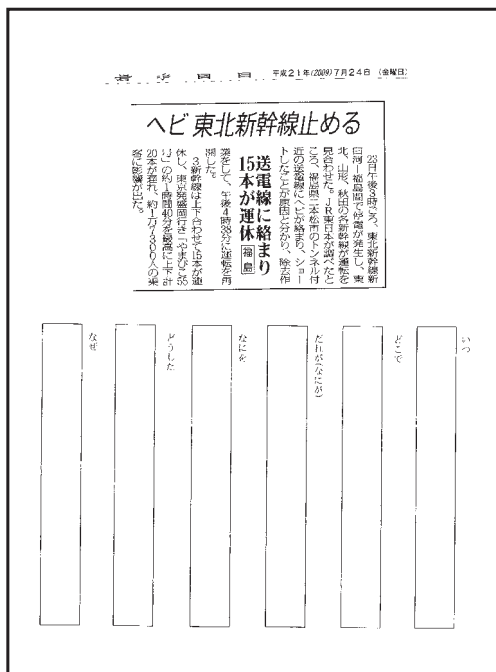 平成21年(2009)7月24日 (金曜日)
ヘビ 東北新幹線止める
送電線に絡まり
15本が運休 福島
23日午後3時ごろ、東北新幹線新
白河−福島間で停電が発生し、東
北、山形、秋田の各新幹線が運転を
見合わせた。JR東日本が調べたと
ころ、福島県二本松市のトンネル付
近の送電線にヘビが絡まり、ショー
トしたことが原因と分かり、除去作
業をして、午後4時38分に運転を再
開した。
3新幹線は上下合わせて15本が運
休し、東京発盛岡行き「やまびこ55
号」の約1時間40分を最高に上下計
20本が遅れ、約1万7300人の乗
客に影響が出た。
いつ
どこで
だれが(なにが)
なにを
どうした
なぜ